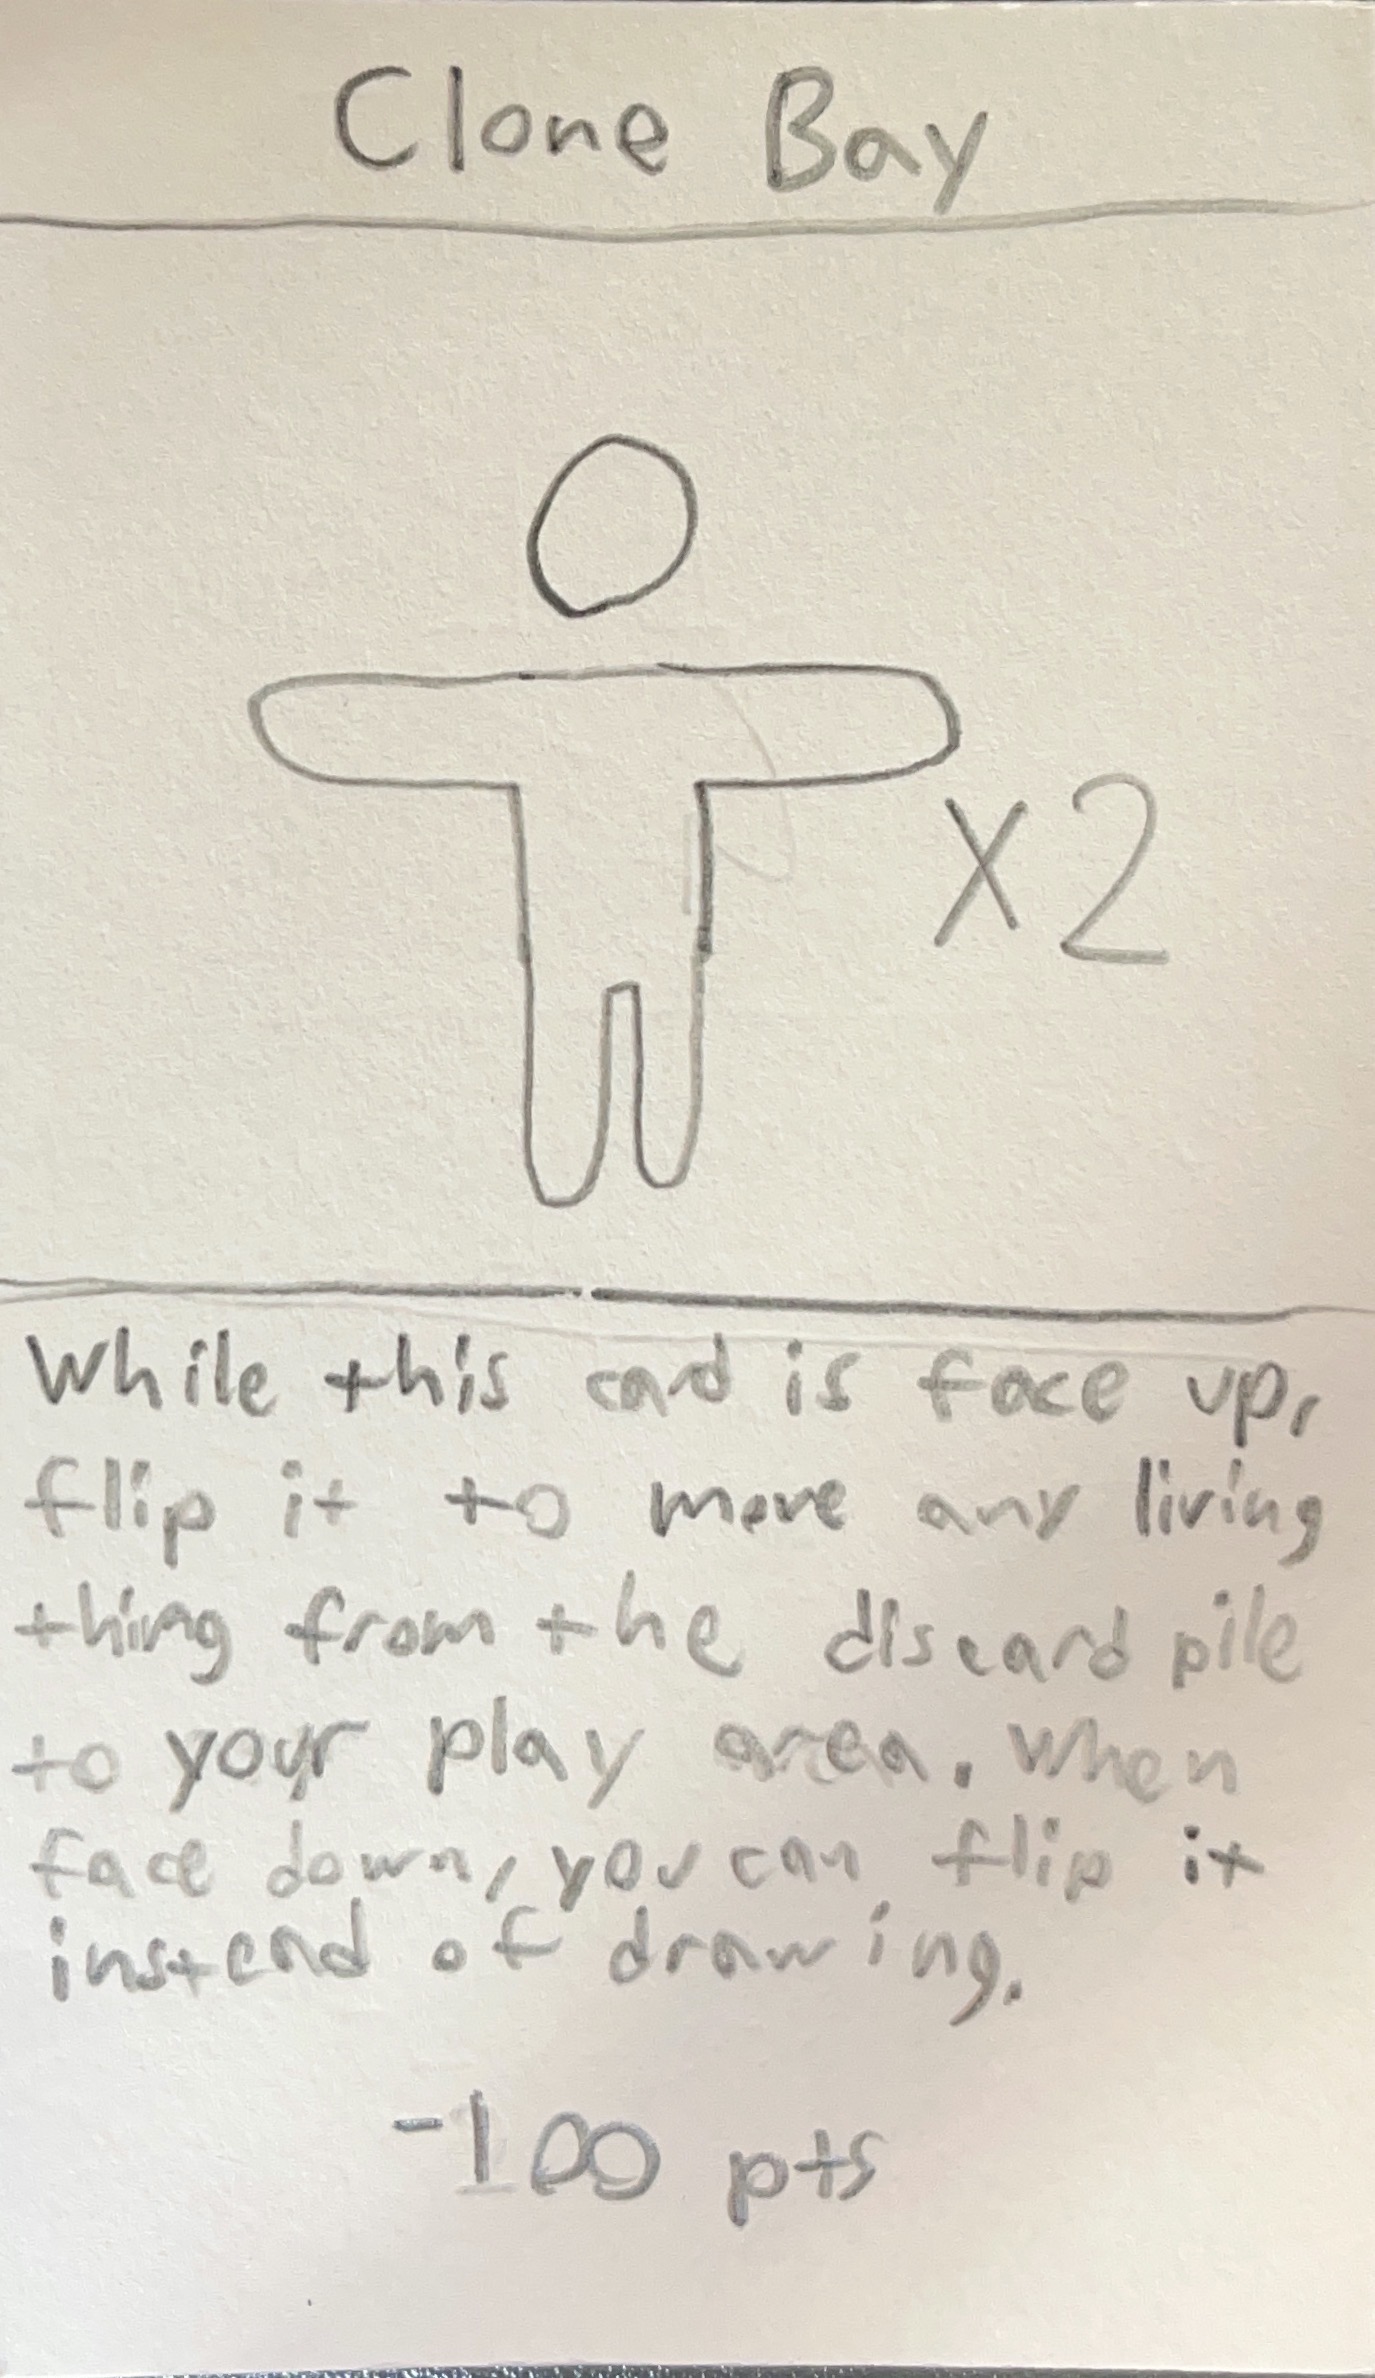 Clone Bay
x2
While this card is face up,
flip it to move any living
thing from the discard pile
to your play area. When
face down, you can flip it
instead of drawing.
-100 pts